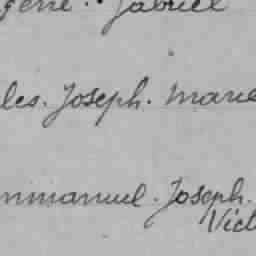 gène. Gabriel
les. Joseph. Marie
mmanuel. Joseph.
Vict